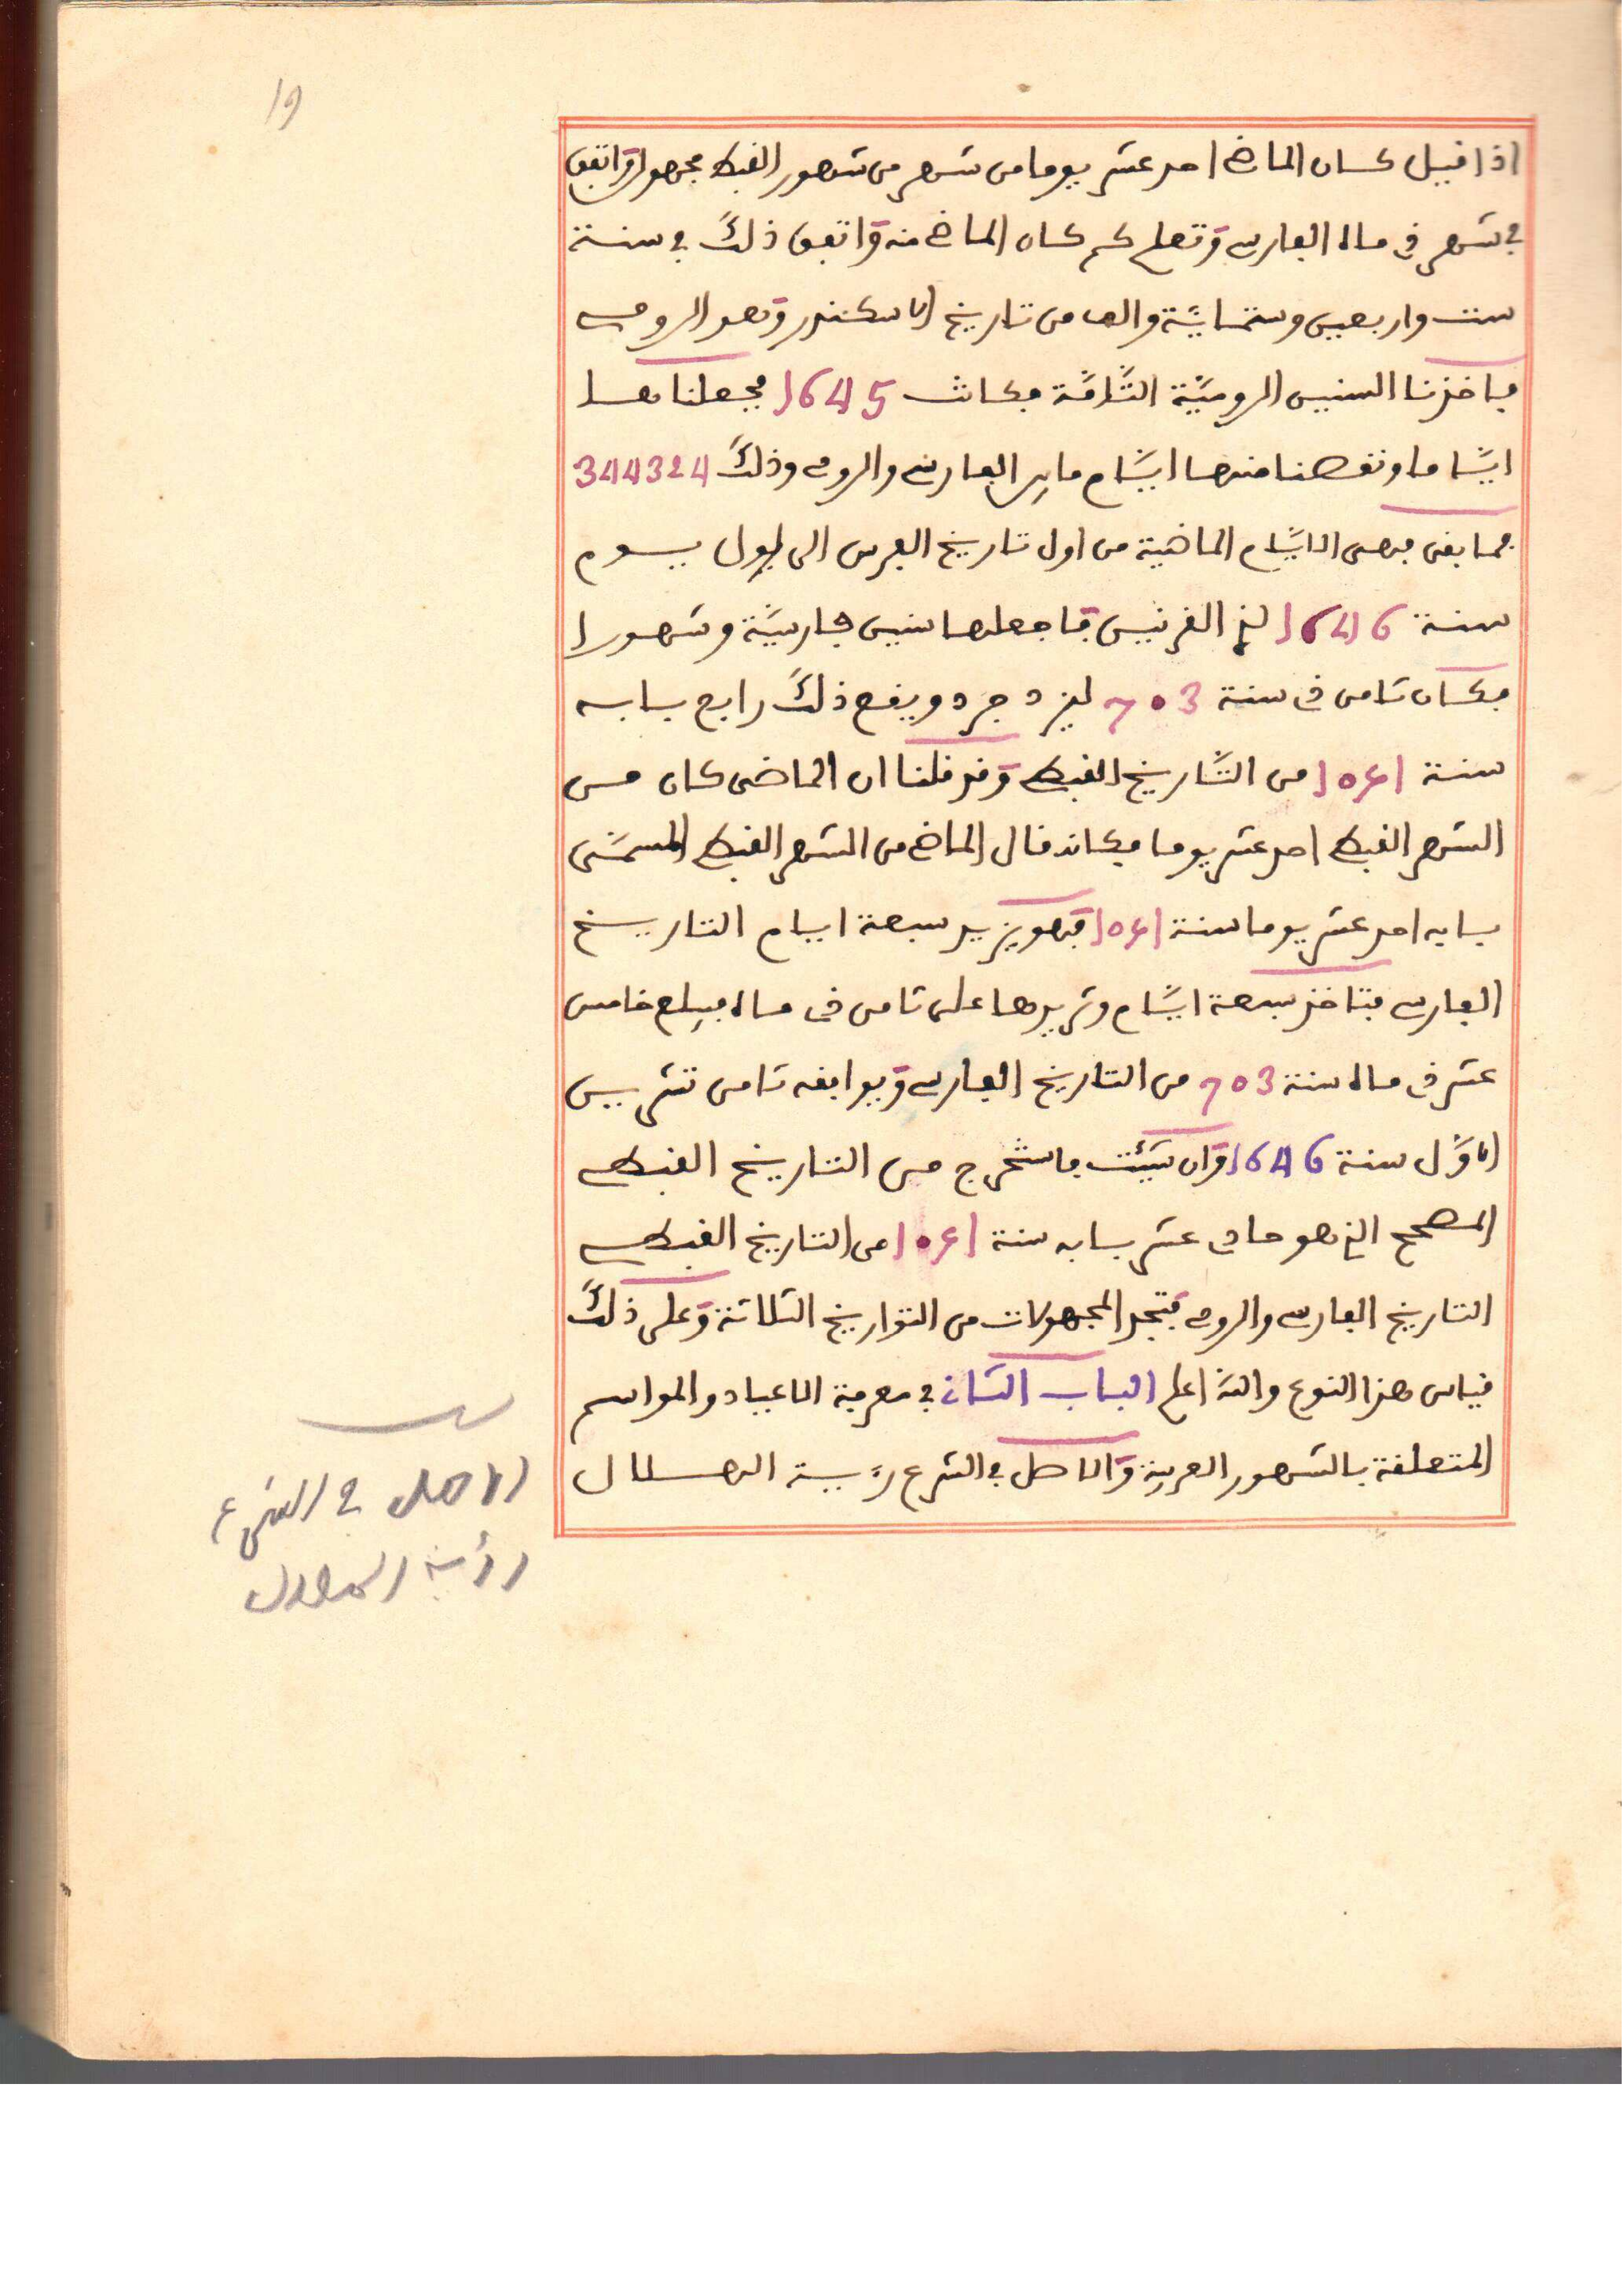 19
اذا قيل كان الماضى احد عشر يوما من شهر من شهور القبط مجهول وَاتفق
فى شهر دى ماه الفارسى وَتعلم كم كان الماضى منه وَاتفق ذلك فى سنة
ست واربعين وستمائَة والف من تاريخ الاسكندر وَهو الرومى
فاخذنا السنين الروميَّة التَّامَّة فكانت 1645 فجعلناها
ايَّاما ونقصنا منها ايَّام ما بين الفارسى والرومى وذلك 344324
فما بقى فهى الايَّام الماضية من اول تاريخ الفرس الى اول يوم
سنة 1646 لذى القرنين فَاجعلها سنين فارسيَّة وشهورا
فكان ثامن دى سنة 703 ليزدجرد ويقع ذلك رابع بابه
سنة 1051 من التَّاريخ القبطى وَقد قلنا ان الماضى كان من
الشهر القبطى احد عشر يوما فكانه قال الماضى من الشهر القبطى المسمَّى
بابه احد عشر يوما سنة 1051 فَهو يزيد سبعة ايام التاريخ
الفارسى فتاخذ سبعة ايَّام وتزيدها على ثامن دى ماه فبلغ خامس
عشر دى ماه سنة 703 من التاريخ الفارسى وَيوافقه ثامن تشرين
الاوَّل سنة 1646 وَان شئت فاستخرج من التاريخ القبطى
المصحح الذى هو حادى عشر بابه سنة 1051 من التاريخ القبطى
التاريخ الفارسى والرومى فَتجد المجهولات من التواريخ الثلاثة وَعلى ذلك
قياس هذا النوع والله اعلم الباب الثانى فى معرفة الاعياد والمواسم
المتعلقة بالشهور العربية وَالاصل فى الشرع رؤية الهلال
الاصل فى الشرع
رؤية الهلال